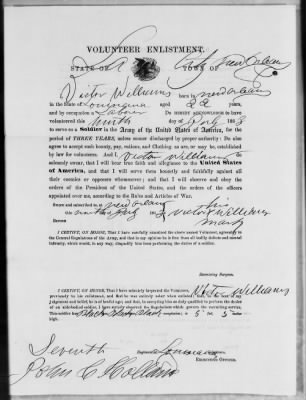 VOLUNTEER ENLISTMENT.
STATE OF La TOWN OF City New Orleans
I, Victor Williams born in New Orleans
in the State of Louisiana aged 22 years,
and by occupation a Labourer Do HEREBY ACKNOWLEDGE to have
volunteered this ninth day of July 1863
to serve as a Soldier in the Army of the United States of America, for the
period of THREE YEARS, unless sooner discharged by proper authority: Do also
agree to accept such bounty, pay, rations, and clothing, as are, or may be, estab-
lished by law for volunteers. And I, Victor Williams do
solemnly swear, that I will bear true faith and allegiance to the United States
of America, and that I will serve them honestly and faithfully against all
their enemies or opposers whomsoever; and that I will observe and obey the
orders of the President of the United States, and the orders of the officers
appointed over me, according to the Rules and Articles of War.
Sworn and subscribed to, at New Orleans his
this ninth July 1863 Victor Williams
BEFORE mark
I CERTIFY, ON HONOR, That I have carefully examined the above named Volunteer, agreeably to
the General Regulations of the Army, and that in my opinion he is free from all bodily defects and mental
infirmity, which would, in any way, disqualify him from performing the duties of a soldier.
Examining Surgeon.
I CERTIFY, ON HONOR, That I have minutely inspected the Volunteer, Victor Williams
previously to his enlistment, and that he was entirely sober when enlisted; that, to the best of my
judgment and belief, he is of lawful age; and that, in accepting him as duly qualified to perform the duties
of an able-bodied soldier, I have strictly observed the Regulations which govern the recruiting service.
This soldier has Black eyes, Black hair, Black complexion, is 5 feet 5 inches
high.
Seventh Regiment of Louisiana
John C Holland
RECRUITING OFFICER.